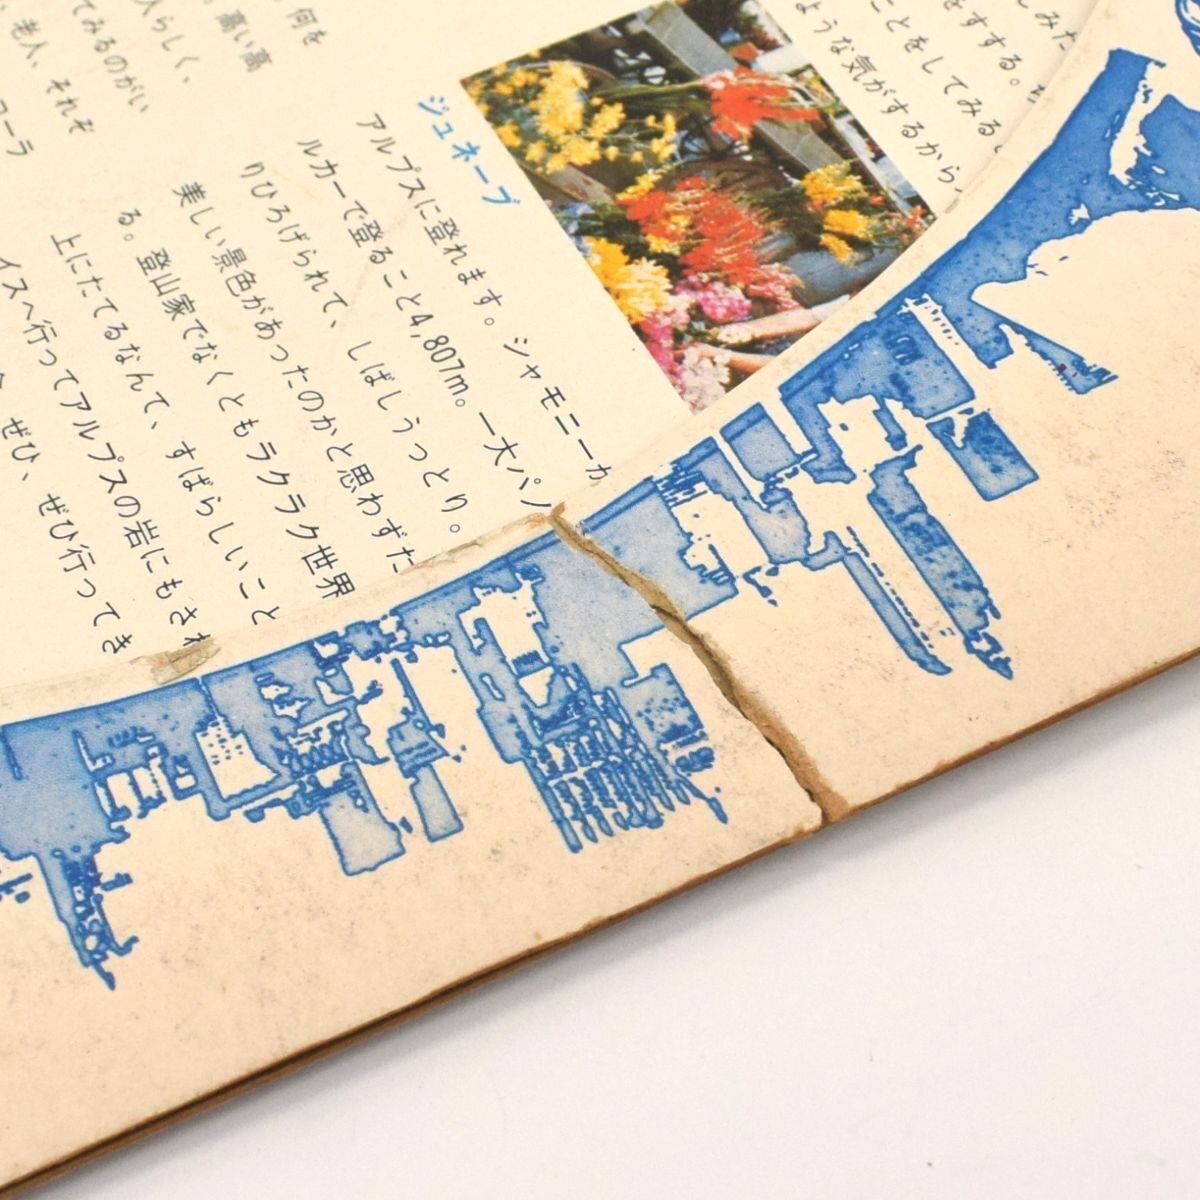 しみた
をすする。
ことをしてみる
ような気がするから、
ジュネーブ
アルプスに登れます。シャモニーか
ルカーで登ること4,807m。一大パノ
りひろげられて、しばしうっとり。
美しい景色があったのかと思わずた
る。登山家でなくともラクラク世界
上にたてるなんて、すばらしいこと
イスへ行ってアルプスの岩にもさ
ぜひ、ぜひ行ってき
何を
。高い高
人らしく、
てみるのがい
老人、それぞ
ローラ